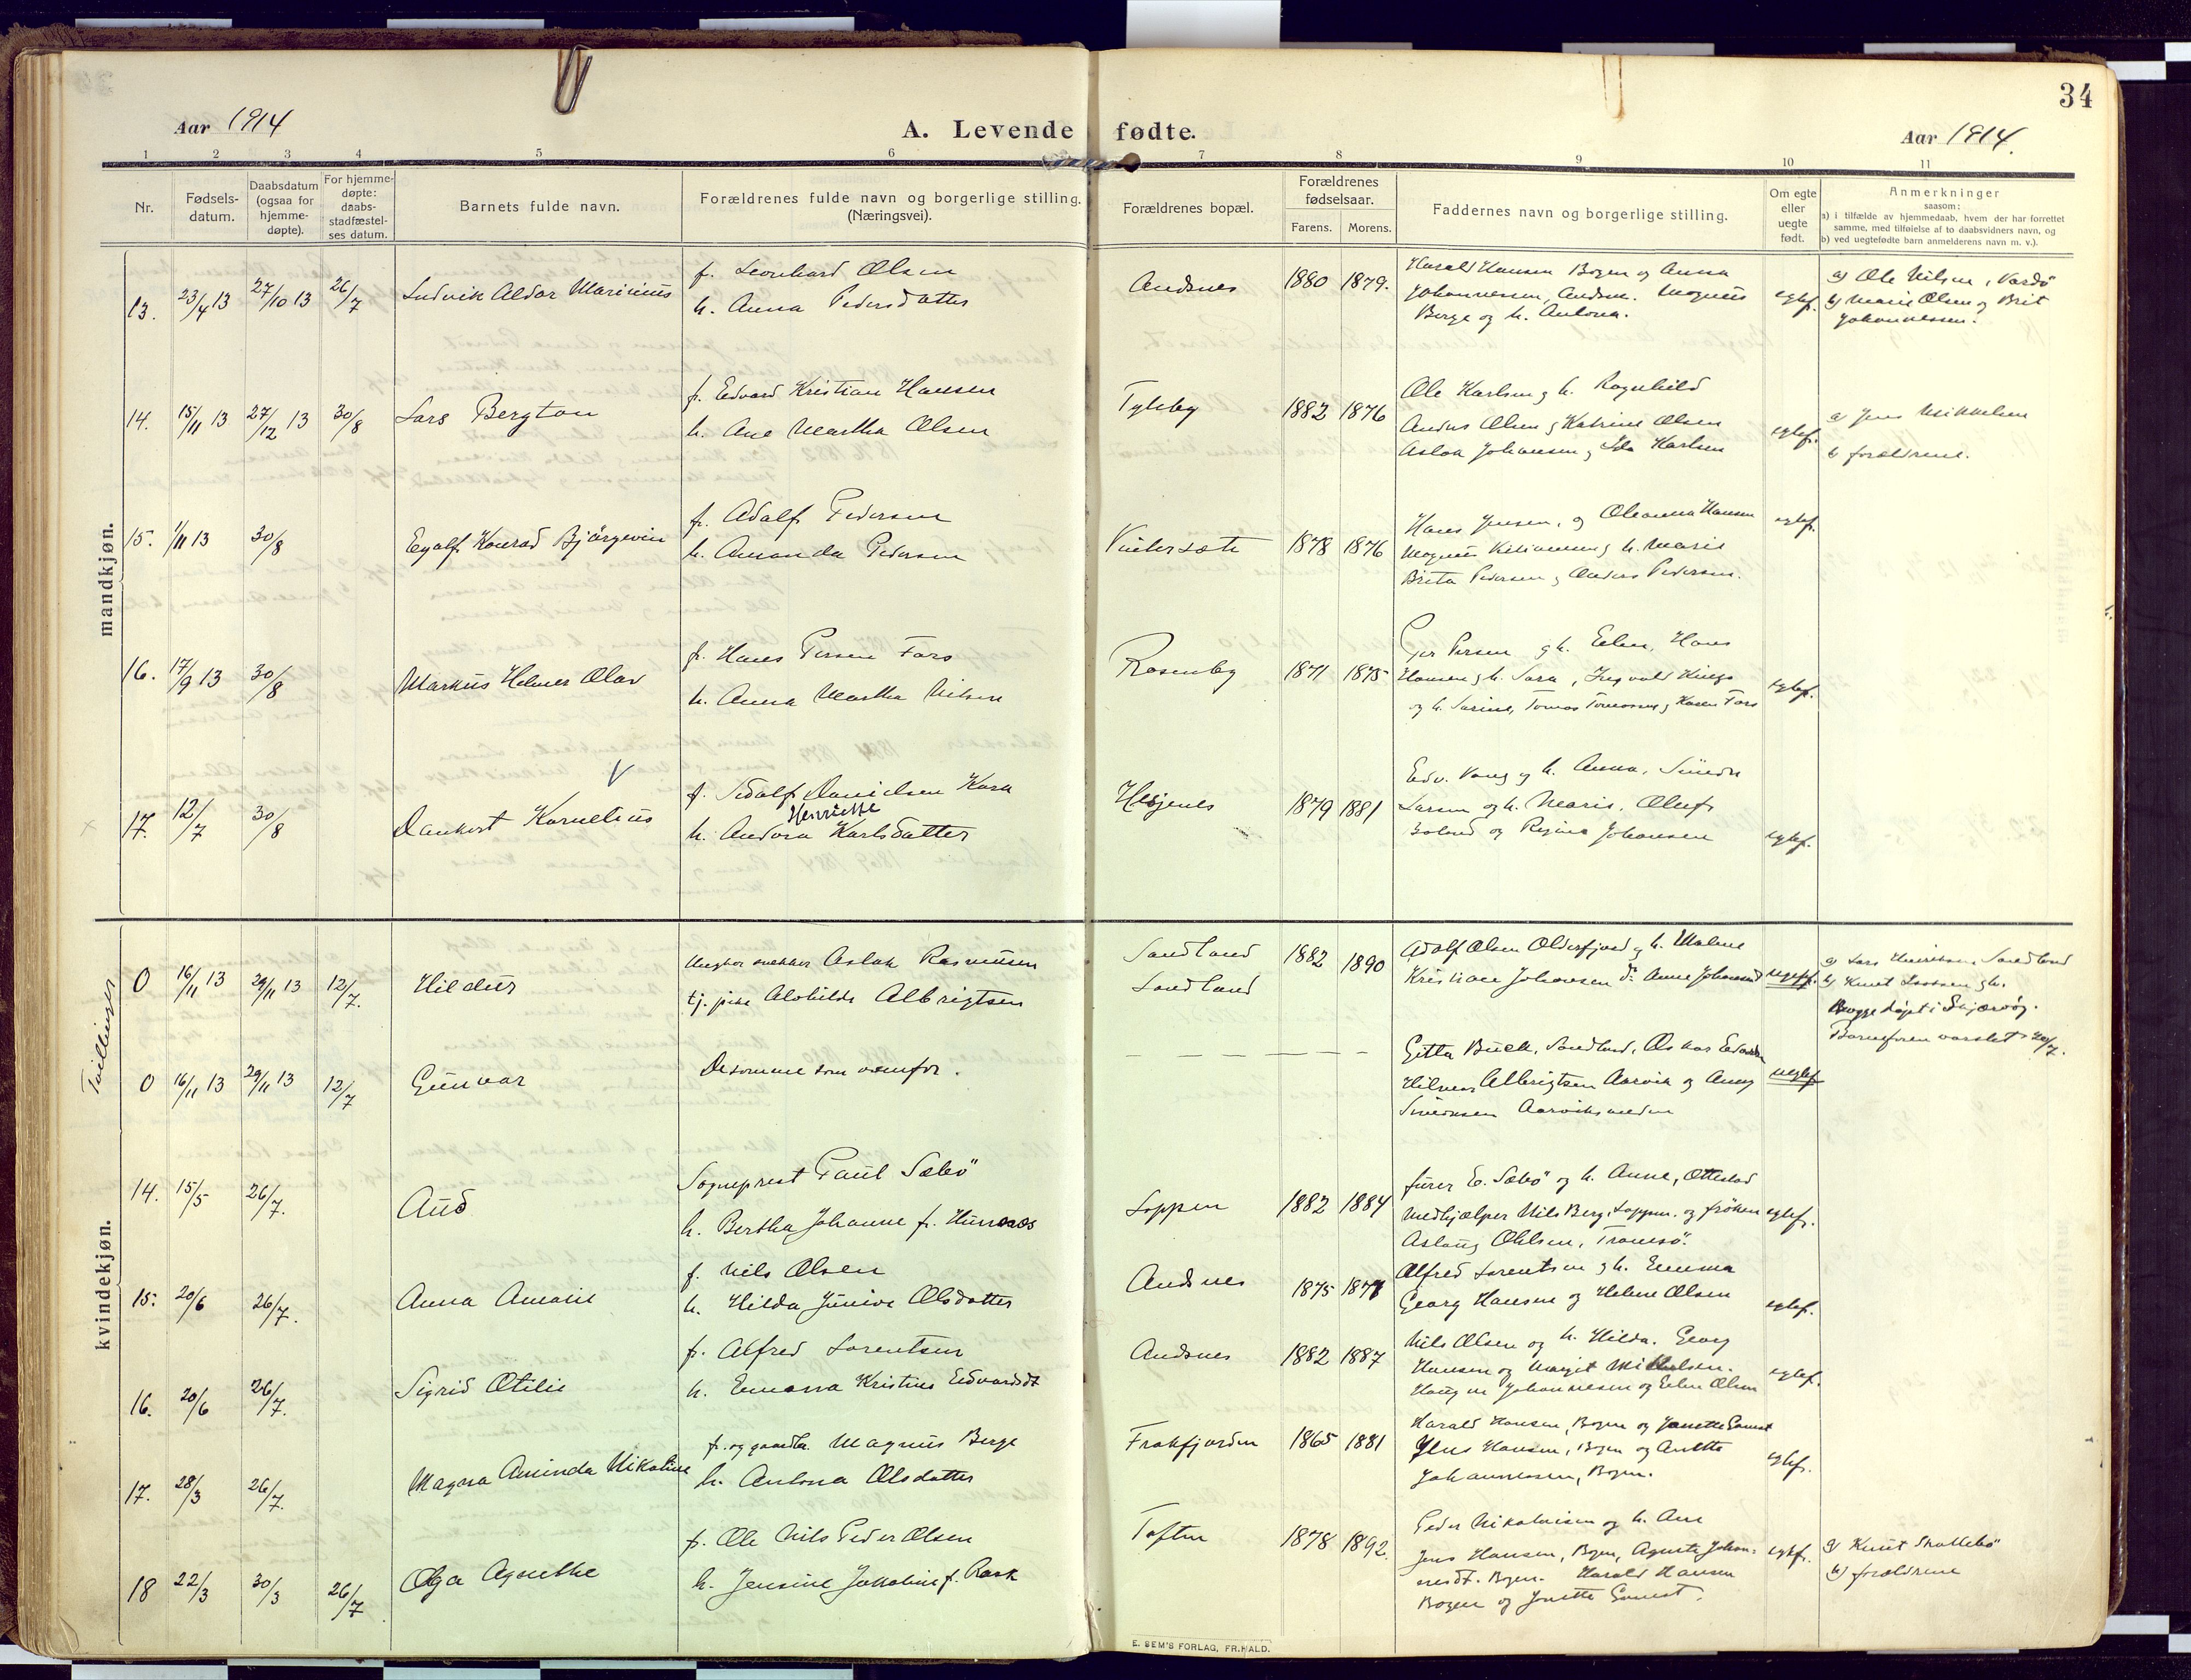 34
Aar 1914
A. Levende fødte.
Aar 1914.
1 2 3 4 5 6 7 8 9 10 11
Nr.
Fødsels-
datum.
Daabsdatum
(ogsaa for
hjemme-
døpte).
For hjemme-
døpte:
daabs-
stadfæstel-
ses datum.
Barnets fulde navn.
Forældrenes fulde navn og borgerlige stilling.
(Næringsvei).
Forældrenes bopæl.
Forældrenes
fødselsaar.
Farens. Morens.
Faddernes navn og borgerlige stilling.
Om egte
eller
uegte
født.
Anmerkninger
saasom:
a) i tilfælde av hjemmedaab, hvem der har forrettet
samme, med tilføielse af to daabsvidners navn, og
b) ved uegtefødte barn anmelderens navn m. v.).
mandkjøn.
13. 23/4 13 27/10 13 26/7 Ludvik Aldor Marinius
f. Leonhard Olsen
h. Anna Pedersdatter
Andsnes 1880 1879.
Harald Hansen Bogen og Anna
Johannessen, Andsn. Magnus
Berge og h. Antona.
egtef.
a) Ole Nilsen, Vardö
b) Marie Olsen og Brit
Johannessen.
14. 15/11 13 27/12 13 30/8 Lars Bergton
f. Edvard Kristian Hansen
h. Ane Martha Olsen
Tyleby 1882 1876
Ole Karlsen og h. Ragnhild
Anders Olsen og Katrine Olsen
Aslak Johansen og Ida Karlsen
egtef.
a) Jens Mikkelsen
b) forældrene.
15. 1/11 13 30/8 Eyolf Konrad Björgevin
f. Adolf Pedersen
h. Amanda Pedersen
Vintersæte 1878 1876
Hans Jensen, og Oleanna Hansen
Magnus Kiliansen og h. Marie
Brita Pedersen og Anders Pedersen.
egtef.
16. 17/9 13 30/8 Markus Helmer Olav
f. Hans Persen Fars
h. Anna Martha Nilsen
Rosenby 1871 1875
Per Persen og h. Elen, Hans
Hansen og h. Sara, Ingvald Kinge
og h. Sarine, Tomas Tomassen og Karen Fars
egtef.
17. 12/7 30/8 Dankert Kornelius
f. Sedolf Danielsen Kara
Henriette
h. Andora Karlsdatter
Hesjenes 1879 1881
Edv. Vang og h. Anna, Simon
Larsen og h. Marie, Oluf
og Regine Johansen
egtef.
Tvillinger
0 16/11 13 29/11 13 12/7. Hildur
Ungkar snekker Aslak Rasmussen
tj. pike Alvhilde Albrigtsen
Sandland 1882 1890
Sandland
Adolf Olsen Olderfjord og h. Malene
Kristian Johansen d: Anne Johansen
uegtef.
a) Lars Henriksen, Sandland
b) Knut Larssen og h.
Begge døpt i Skjærvöy.
Barnefaren varslet 20/7.
0 16/11 13 29/11 13 12/7 Gunvar
De samme som ovenfor.
Gitta Buck, Sandland, Oskar Edvardsen
Hilmar Albrigtsen Aarvik og Anny
Simonsen Aarviksanden
uegtef
kvindekjøn.
14. 15/5 26/7. Aud
Sogneprest Paul Sæbö
h. Bertha Johanne f. Hunnæs
Loppen 1882 1884
furer E. Sæbö og h. Anne, Ottestad
medhjælper Nils Berg, Loppen. og fröken
Aslaug Ohlsen, Tromsö.
egtef.
15. 20/6 26/7. Anna Amalie
f. Nils Olsen
h. Hilda Junive Olsdatter
Andsnes 1875 1877
Alfred Lorentsen og h. Emma
Georg Hansen og Helene Olsen
egtef.
16. 20/6 26/7. Sigrid Otilie
f. Alfred Lorentsen
h. Emma Kristine Edvardsdt
Andsnes 1882 1887
Nils Olsen og h. Hilda. Georg
Hansen og Margit Mikkelsen.
Johannesen og Elen Olsen
egtef.
17. 28/3 26/7. Magna Aminda Nikoline
f. og gaardbr. Magnus Berge
h. Antona Olsdatter
Frakfjorden 1865 1881
Harald Hansen, Bogen og Jonette Gamst
Jens Hansen, Bogen og Anette
Johannesen, Bogen.
egtef.
18 22/3 30/3 26/7 Olga Agnethe
f. Ole Nils Peder Olsen
h. Jensine Jakobine f. Rask
Toften 1878 1892.
Peder Nikolaisen og h. Ane
Jens Hansen, Bogen, Agnete Johan-
nesdt. Bogen. Harald Hansen
Bogen og Jonette Gamst.
egtef.
a) Knut Skattebö
b) forældrene
E. SEM'S FORLAG, FR.HALD.